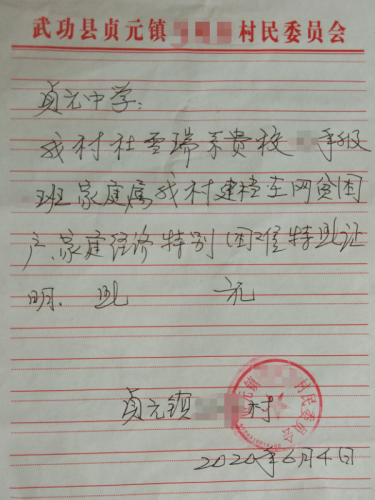 武功县贞元镇 村民委员会
贞元中学:
我村杜雪瑞系贵校 年级
班家庭属我村建档在网贫困
户、家庭经济特别困难特此证
明. 此 元
贞元镇 村
元镇 村民委员会
2020年6月4日